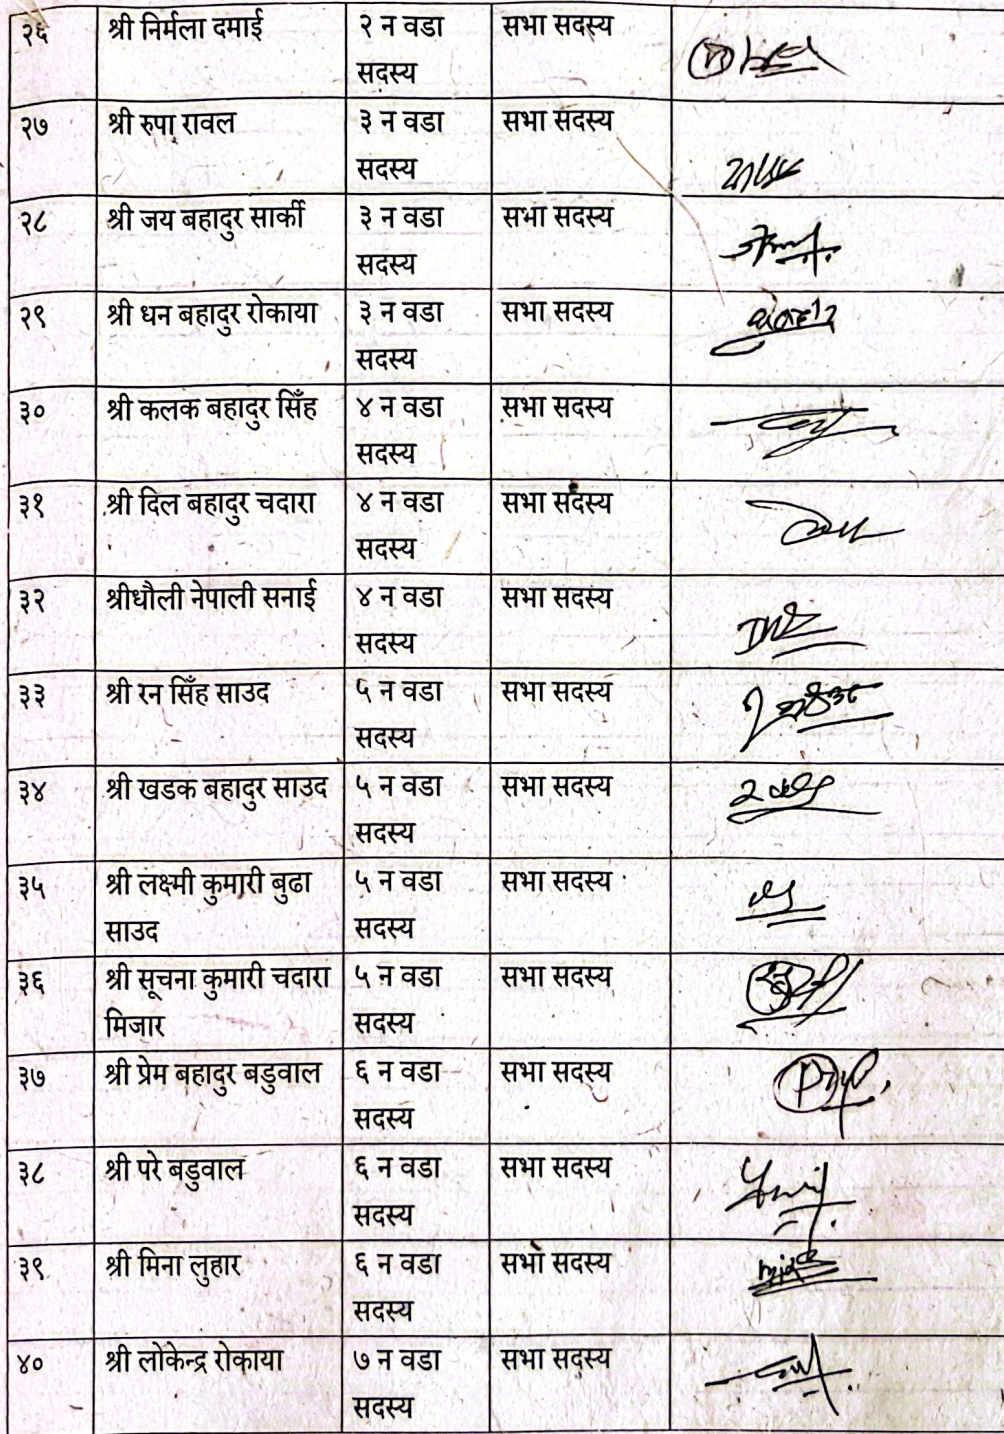 २६ श्री निर्मला दमाई २ न वडा सभा सदस्य
सदस्य
२७ श्री रुपा रावल ३ न वडा सभा सदस्य
सदस्य
२८ श्री जय बहादुर सार्की ३ न वडा सभा सदस्य
सदस्य
२९ श्री धन बहादुर रोकाया ३ न वडा सभा सदस्य
सदस्य
३० श्री कलक बहादुर सिँह ४ न वडा सभा सदस्य
सदस्य
३१ श्री दिल बहादुर चदारा ४ न वडा सभा सदस्य
सदस्य
३२ श्रीधौली नेपाली सनाई ४ न वडा सभा सदस्य
सदस्य
३३ श्री रन सिँह साउद ५ न वडा सभा सदस्य
सदस्य
३४ श्री खडक बहादुर साउद ५ न वडा सभा सदस्य
सदस्य
३५ श्री लक्ष्मी कुमारी बुढा ५ न वडा सभा सदस्य
साउद सदस्य
३६ श्री सूचना कुमारी चदारा ५ न वडा सभा सदस्य
मिजार सदस्य
३७ श्री प्रेम बहादुर बडुवाल ६ न वडा सभा सदस्य
सदस्य
३८ श्री परे बडुवाल ६ न वडा सभा सदस्य
सदस्य
३९ श्री मिना लुहार ६ न वडा सभा सदस्य
सदस्य
४० श्री लोकेन्द्र रोकाया ७ न वडा सभा सदस्य
सदस्य